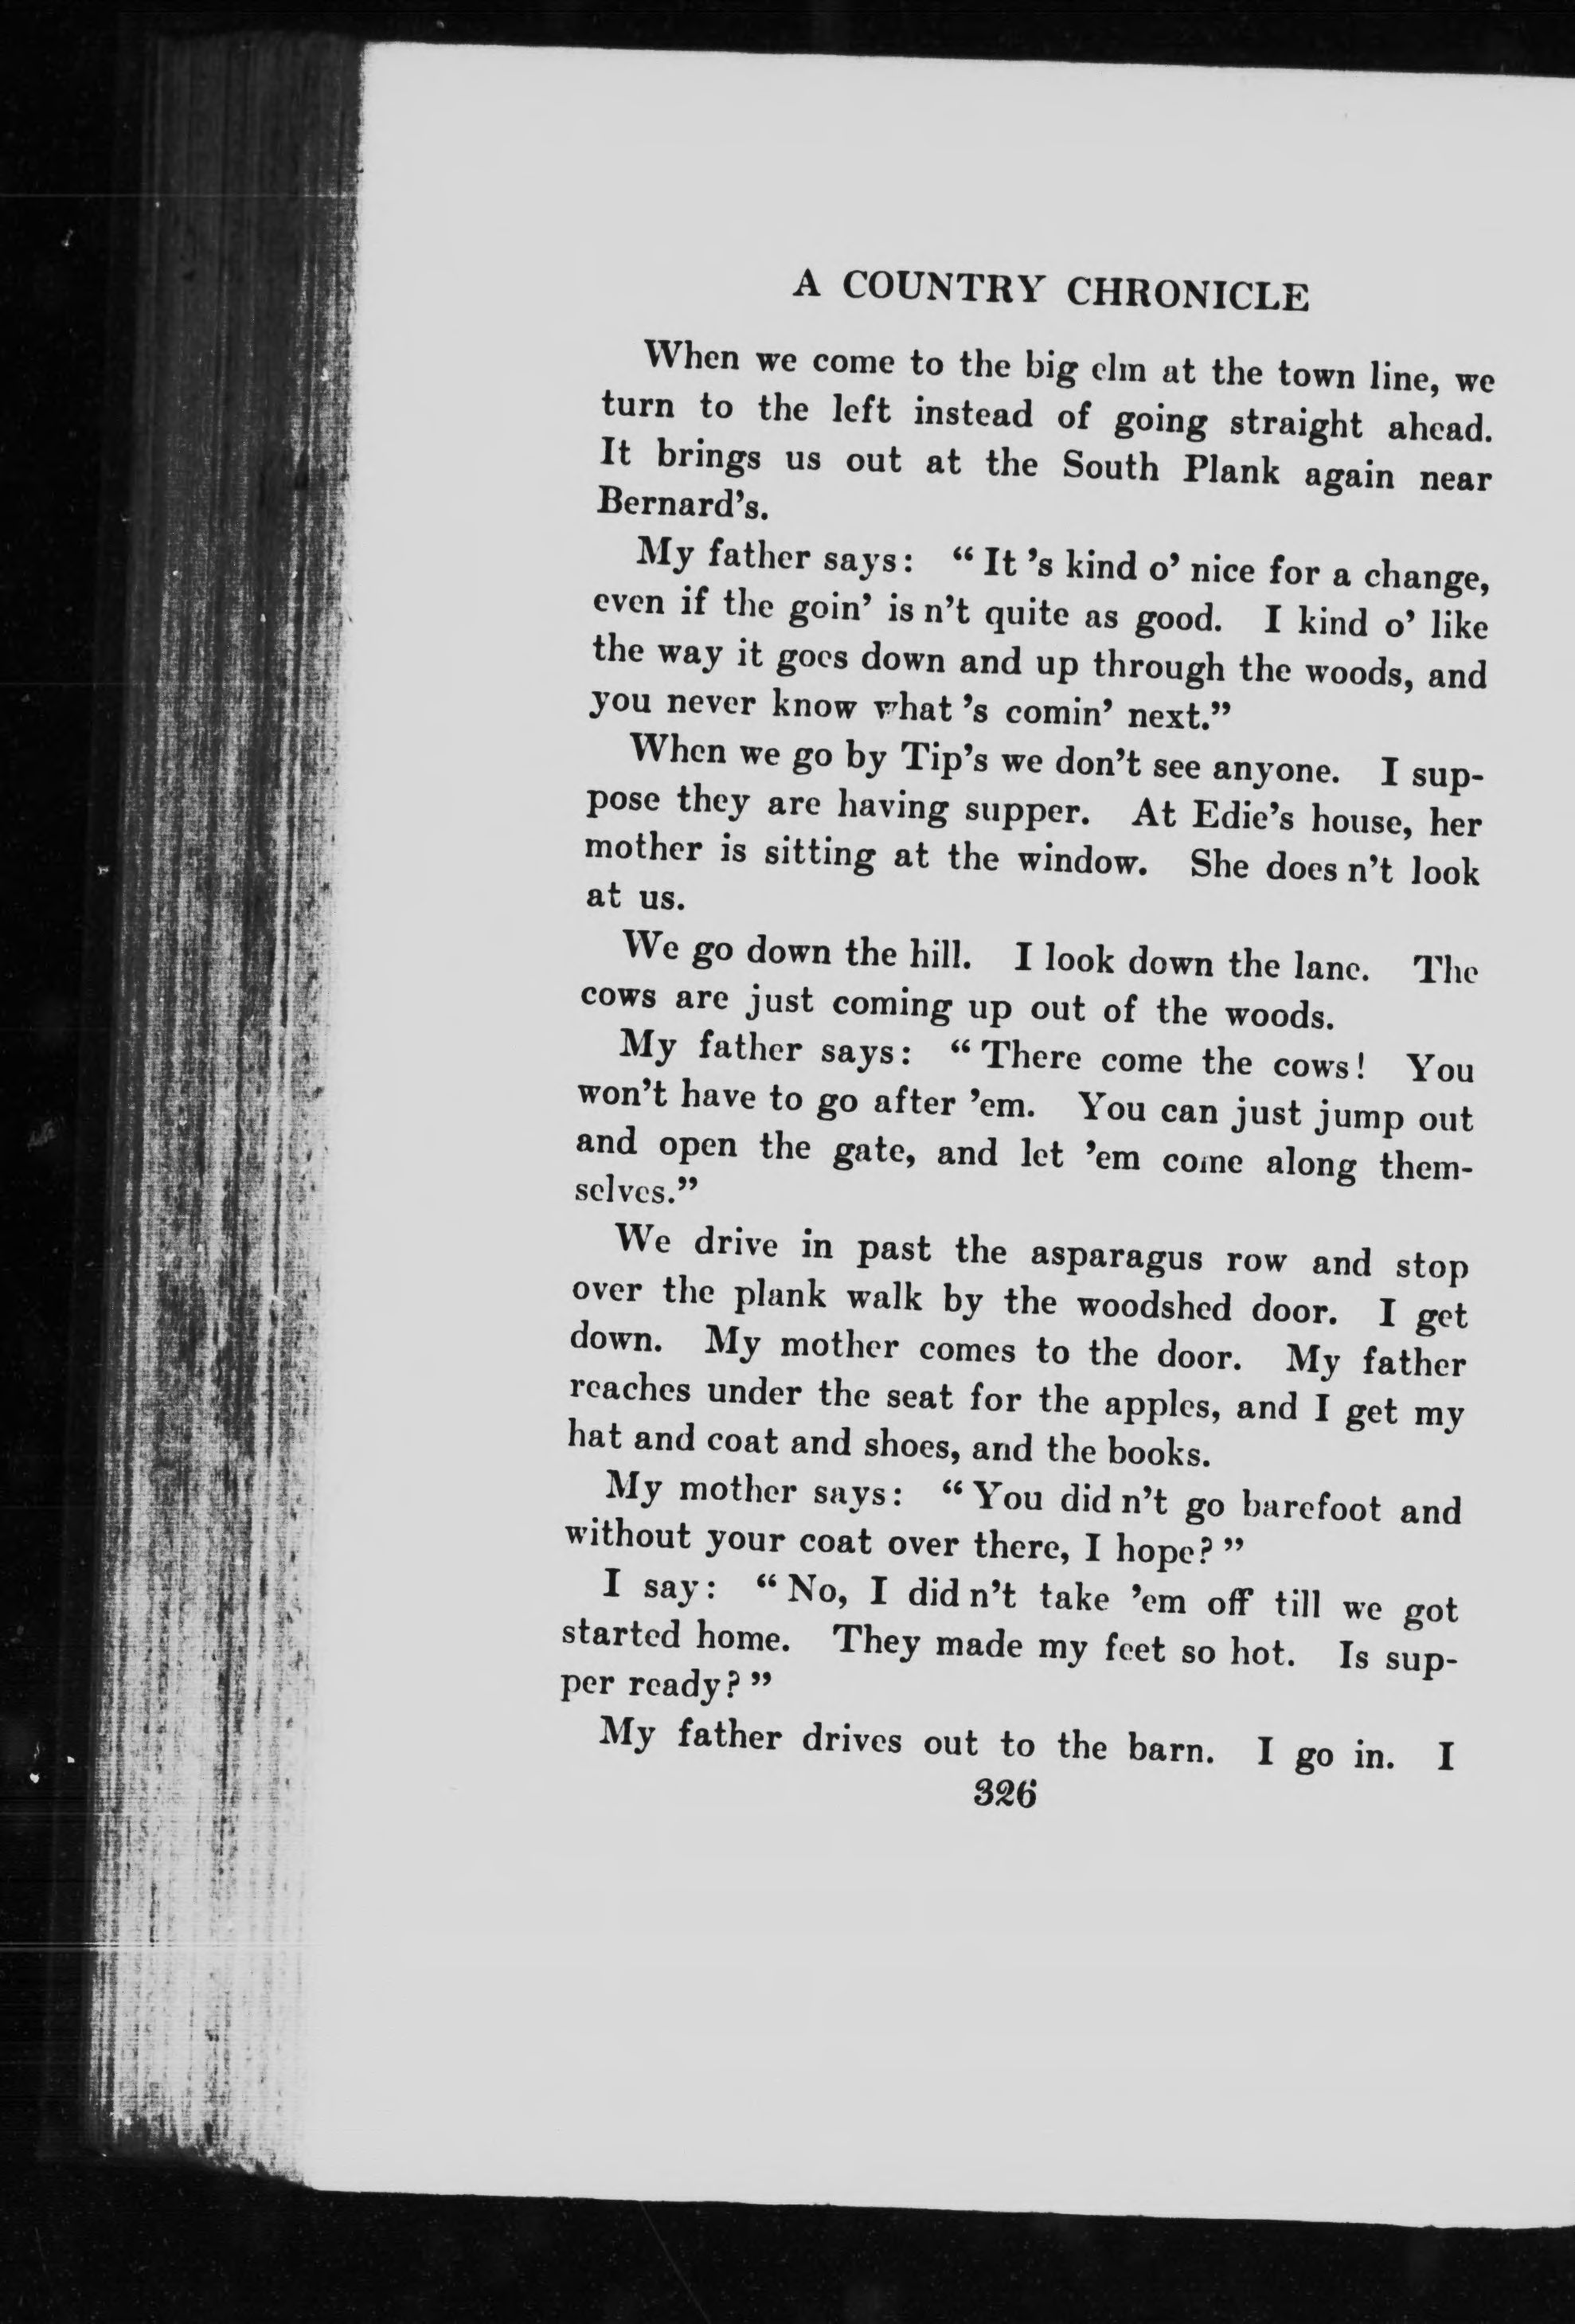 A COUNTRY CHRONICLE
When we come to the big elm at the town line, we
turn to the left instead of going straight ahead.
It brings us out at the South Plank again near
Bernard's.
My father says: "It 's kind o' nice for a change,
even if the goin' is n't quite as good. I kind o' like
the way it goes down and up through the woods, and
you never know what 's comin' next."
When we go by Tip's we don't see anyone. I sup-
pose they are having supper. At Edie's house, her
mother is sitting at the window. She does n't look
at us.
We go down the hill. I look down the lane. The
cows are just coming up out of the woods.
My father says: "There come the cows! You
won't have to go after 'em. You can just jump out
and open the gate, and let 'em come along them-
selves."
We drive in past the asparagus row and stop
over the plank walk by the woodshed door. I get
down. My mother comes to the door. My father
reaches under the seat for the apples, and I get my
hat and coat and shoes, and the books.
My mother says: "You did n't go barefoot and
without your coat over there, I hope?"
I say: "No, I did n't take 'em off till we got
started home. They made my feet so hot. Is sup-
per ready?"
My father drives out to the barn. I go in. I
326